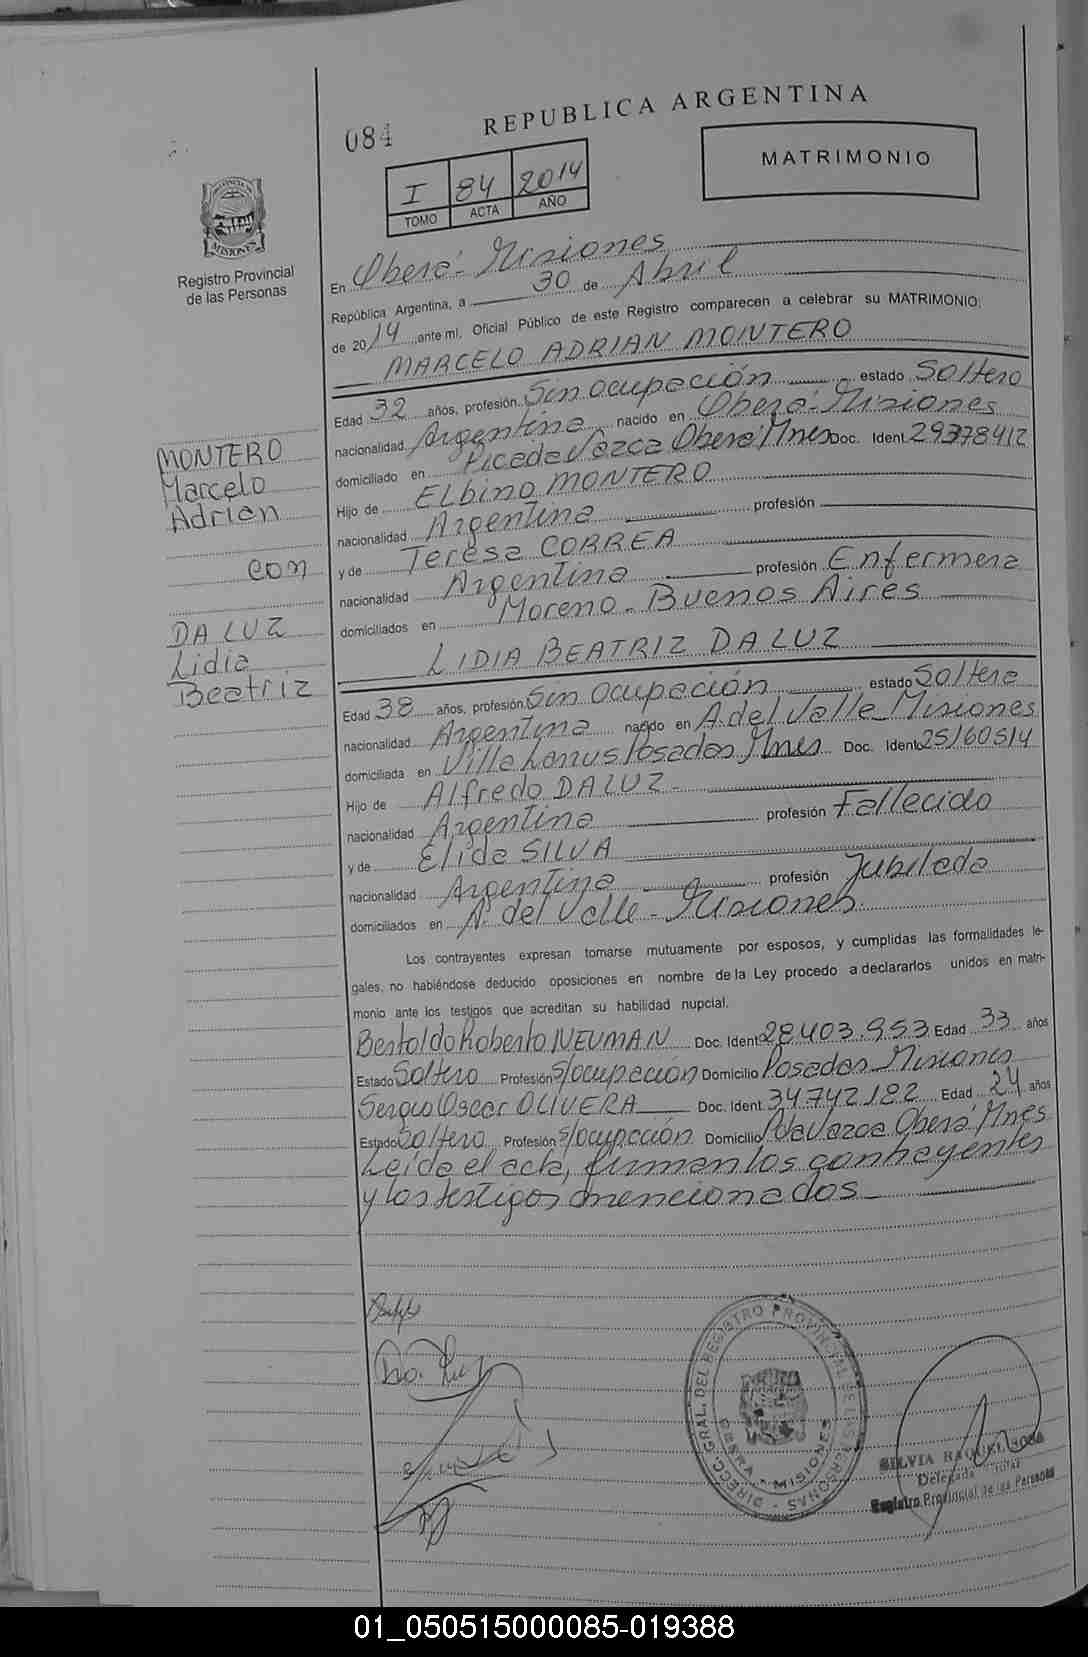 084
REPUBLICA ARGENTINA
MATRIMONIO
I 84 2014
TOMO ACTA AÑO
PROVINCIA DE
MISIONES
Registro Provincial
de las Personas
En Oberá - Misiones
República Argentina, a 30 de Abril
de 2014 ante mí, Oficial Público de este Registro comparecen a celebrar su MATRIMONIO:
MARCELO ADRIAN MONTERO
Edad 32 años, profesión Sin ocupación estado Soltero
nacionalidad Argentina nacido en Oberá - Misiones
domiciliado en Picada Vazca Oberá Mnes Doc. Ident. 29378412
Hijo de Elbino MONTERO
nacionalidad Argentina profesión
y de Teresa CORREA
nacionalidad Argentina profesión Enfermera
domiciliados en Moreno - Buenos Aires
LIDIA BEATRIZ DA LUZ
Edad 38 años, profesión Sin ocupación estado Soltera
nacionalidad Argentina nacido en A. del Valle Misiones
domiciliada en Villa Lanus Posadas Mnes Doc. Ident. 25160514
Hijo de Alfredo DA LUZ -
nacionalidad Argentina profesión Fallecido
y de Elida SILVA
nacionalidad Argentina profesión Jubilada
domiciliados en A. del Valle - Misiones
MONTERO
Marcelo
Adrian
con
DA LUZ
Lidia
Beatriz
Los contrayentes expresan tomarse mutuamente por esposos, y cumplidas las formalidades le-
gales, no habiéndose deducido oposiciones en nombre de la Ley procedo a declararlos unidos en matri-
monio ante los testigos que acreditan su habilidad nupcial.
Bertoldo Roberto NEUMAN Doc. Ident. 28403.953 Edad 33 años
Estado Soltero Profesión S/ocupación Domicilio Posadas Misiones
Sergio Oscar OLIVERA Doc. Ident. 34742.182 Edad 24 años
Estado Soltero Profesión S/ocupación Domicilio Pda Vazca Oberá Mnes
Leída el acta, firman los contrayentes
y los testigos mencionados
DIRECC. GRAL. DEL REGISTRO PROVINCIAL DE LAS PERSONAS
OBERÁ - MISIONES
SILVIA RAQUEL
Delegada Titular
Registro Provincial de las Personas
01_050515000085-019388